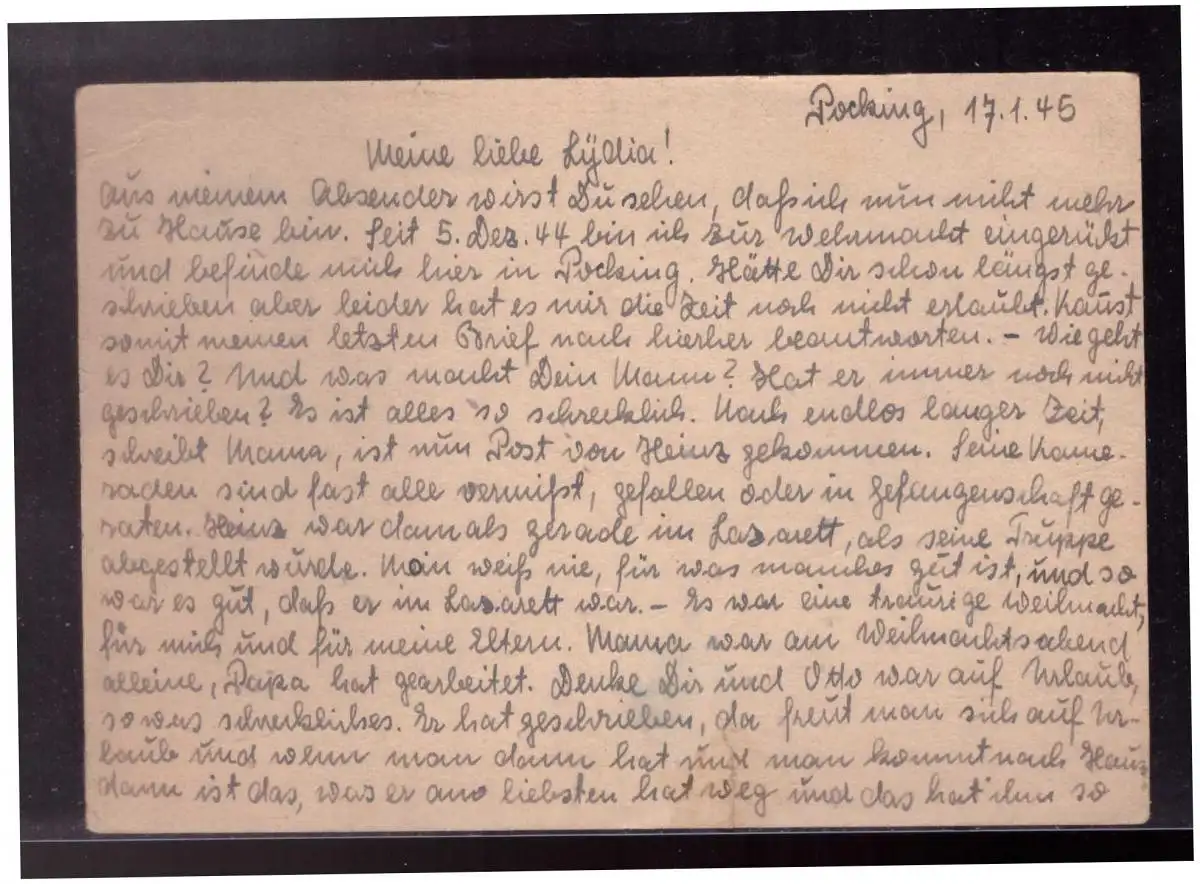 Pocking, 17.1.45
Meine liebe Lÿdia!
Aus meinem Absender wirst Du sehen, daß ich nun nicht mehr
zu Hause bin. Seit 5. Dez. 44 bin ich zur Wehrmacht eingerückt
und befinde mich hier in Pocking. Hätte Dir schon längst ge-
schrieben aber leider hat es mir die Zeit noch nicht erlaubt. Kanst
somit meinen letzten Brief nach hierher beantworten. – Wie geht
es Dir? Und was macht Dein Mann? Hat er immer noch nicht
geschrieben? Es ist alles so schrecklich. Nach endlos langer Zeit,
schreibt Mama, ist nun Post von Heinz gekommen. Seine Kame-
raden sind fast alle vermißt, gefallen oder in Gefangenschaft ge-
raten. Heinz war damals gerade im Lazarett, als seine Truppe
abgestellt wurde. Man weiß nie, für was manches gut ist, und so
war es gut, daß er im Lazarett war. – Es war eine traurige Weihnacht,
für mich und für meine Eltern. Mama war am Weihnachtsabend
alleine, Papa hat gearbeitet. Denke Dir und Otto war auf Urlaub,
so was schreckliches. Er hat geschrieben, da freut man sich auf Ur-
laub und wenn man dann hat und man kommt nach Haus
dann ist das, was er am liebsten hat weg und das hat ihm so